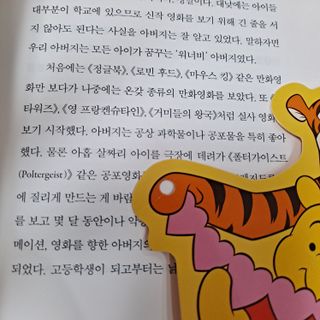 대부분이 학교에 있으므로 신작 영화를 보기 위해 긴 줄을 서
지 않아도 된다는 사실을 아버지는 잘 알고 있었다. 말하자면
우리 아버지는 모든 아이가 꿈꾸는 '워너비' 아버지였다.
처음에는 《정글북》, 《로빈 후드》, 《마우스 킹》 같은 만화영
화만 보다가 나중에는 온갖 종류의 만화영화를 보았다. 또 《
타워즈》, 《영 프랑켄슈타인》, 《거미들의 왕국》처럼 실사 영화
보기 시작했다. 아버지는 공상 과학물이나 공포물을 특히 좋아
했다. 물론 아홉 살짜리 아이를 극장에 데려가 《폴터가이스트
(Poltergeist)》 같은 공포영화
에 질리게 만드는 게 바람
를 보고 몇 달 동안이나 악
메이션, 영화를 향한 아버지의
되었다. 고등학생이 되고부터는